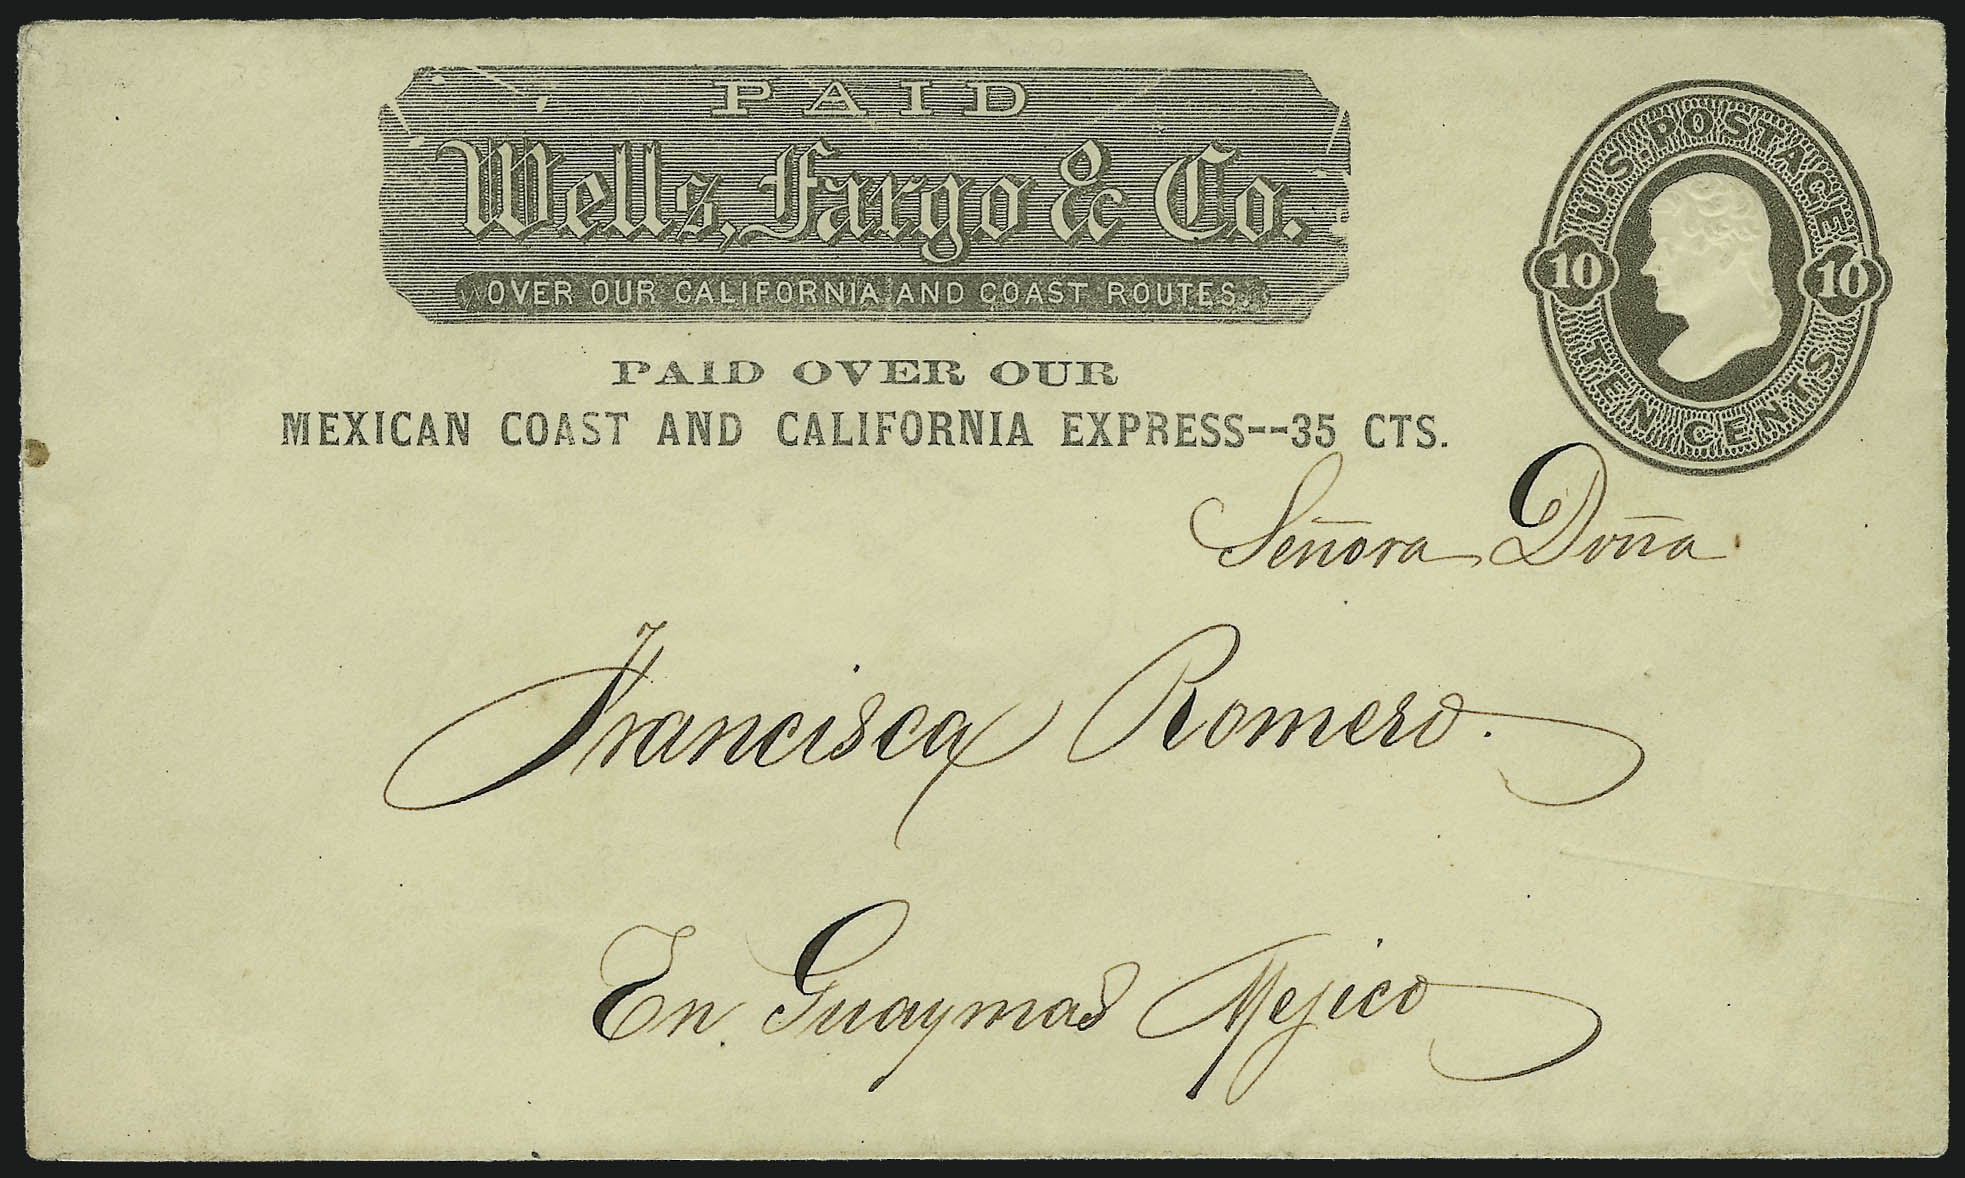 PAID
Wells, Fargo & Co.
OVER OUR CALIFORNIA AND COAST ROUTES.
PAID OVER OUR
MEXICAN COAST AND CALIFORNIA EXPRESS--35 CTS.
U.S. POSTAGE
10 10
TEN CENTS
Señora Doña
Francisca Romero.
En Guaymas Mejico